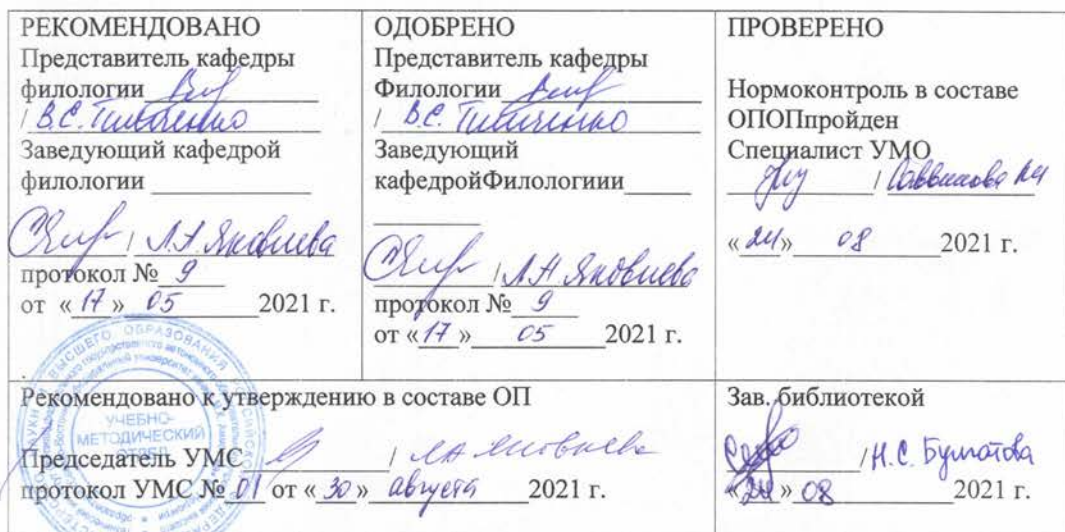 РЕКОМЕНДОВАНО
Представитель кафедры
филологии
/ В.С.
Заведующий кафедрой
филологии
/ Л.Н. Яковлева
протокол № 9
от «17» 05 2021 г.
.
ОДОБРЕНО
Представитель кафедры
Филологии
/ В.С.
Заведующий
кафедройФилологиии
/ Л.Н Яковлева
протокол № 9
от «17» 05 2021 г.
ПРОВЕРЕНО
Нормоконтроль в составе
ОПОПпройден
Специалист УМО
/
«24» 08 2021 г.
Рекомендовано к утверждению в составе ОП
Председатель УМС / Яковлева
протокол УМС № 01 от «30» августа 2021 г.
УЧЕБНО-
МЕТОДИЧЕСКИЙ
ОТДЕЛ
Зав. библиотекой
/ Н.С.
«24» 08 2021 г.